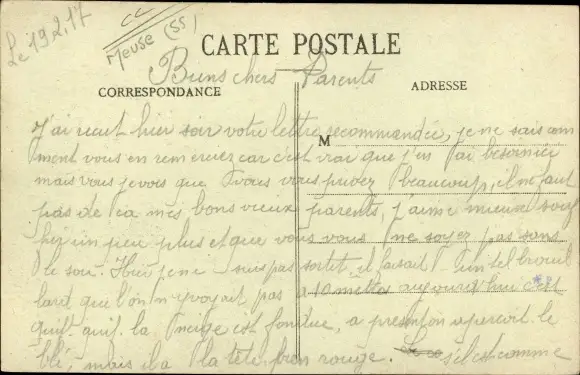 Le 19 2, 17
Meuse (55)
CARTE POSTALE
Biens chers Parents
CORRESPONDANCE
ADRESSE
M
J'ai recut hier soir votre lettre recommandée, je ne sais com
ment vous en remerciez car c'est vrai que j'en ai besoin ici
mais vous je vois que vous vous privez beaucoup, il ne faut
pas de ca mes bons vieux parents, j'aime mieux souf
frir un peu plus et que vous vous ne soyez pas sans
le sou. Hier je ne suis pas sortit, il faisait un tel brouil
lard que l'on n'y voyait pas a 10 mètres aujourd'hui c'est
la neige est fondue, a present on aperçoit le
blé, mais il a la tête bien rouge. s'il est comme